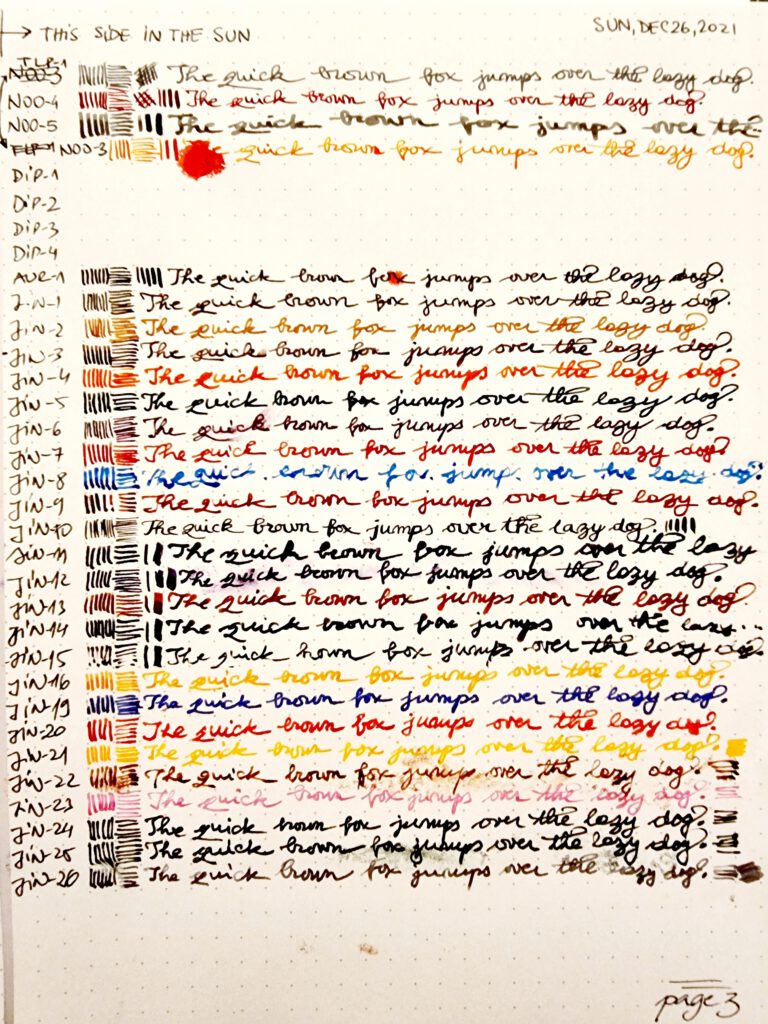 → THIS SIDE IN THE SUN SUN, DEC 26, 2021
TLP-1
N00-3 The quick brown fox jumps over the lazy dog.
N00-4 The quick brown fox jumps over the lazy dog.
N00-5 The quick brown fox jumps over the...
N00-3 quick brown fox jumps over the lazy dog.
DIP-1
DIP-2
DIP-3
DIP-4
AUR-1 The quick brown fox jumps over the lazy dog.
JIN-1 The quick brown fox jumps over the lazy dog.
JIN-2 The quick brown fox jumps over the lazy dog.
JIN-3 The quick brown fox jumps over the lazy dog.
JIN-4 The quick brown fox jumps over the lazy dog.
JIN-5 The quick brown fox jumps over the lazy dog.
JIN-6 The quick brown fox jumps over the lazy dog.
JIN-7 The quick brown fox jumps over the lazy dog.
JIN-8 The quick brown fox jump. over the lazy dog.
JIN-9 The quick brown fox jumps over the lazy dog.
JIN-10 The quick brown fox jumps over the lazy dog.
JIN-11 The quick brown fox jumps over the lazy
JIN-12 The quick brown fox jumps over the lazy dog.
JIN-13 The quick brown fox jumps over the lazy dog.
JIN-14 The quick brown fox jumps over the lazy...
JIN-15 The quick brown fox jumps over the lazy dog.
JIN-16 The quick brown fox jumps over the lazy dog.
JIN-19 The quick brown fox jumps over the lazy dog.
JIN-20 The quick brown fox jumps over the lazy dog.
JIN-21 The quick brown fox jumps over the lazy dog.
JIN-22 The quick brown fox jumps over the lazy dog.
JIN-23 The quick brown fox jumps over the lazy dog.
JIN-24 The quick brown fox jumps over the lazy dog.
JIN-25 The quick brown fox jumps over the lazy dog.
JIN-26 The quick brown fox jumps over the lazy dog.
page 3